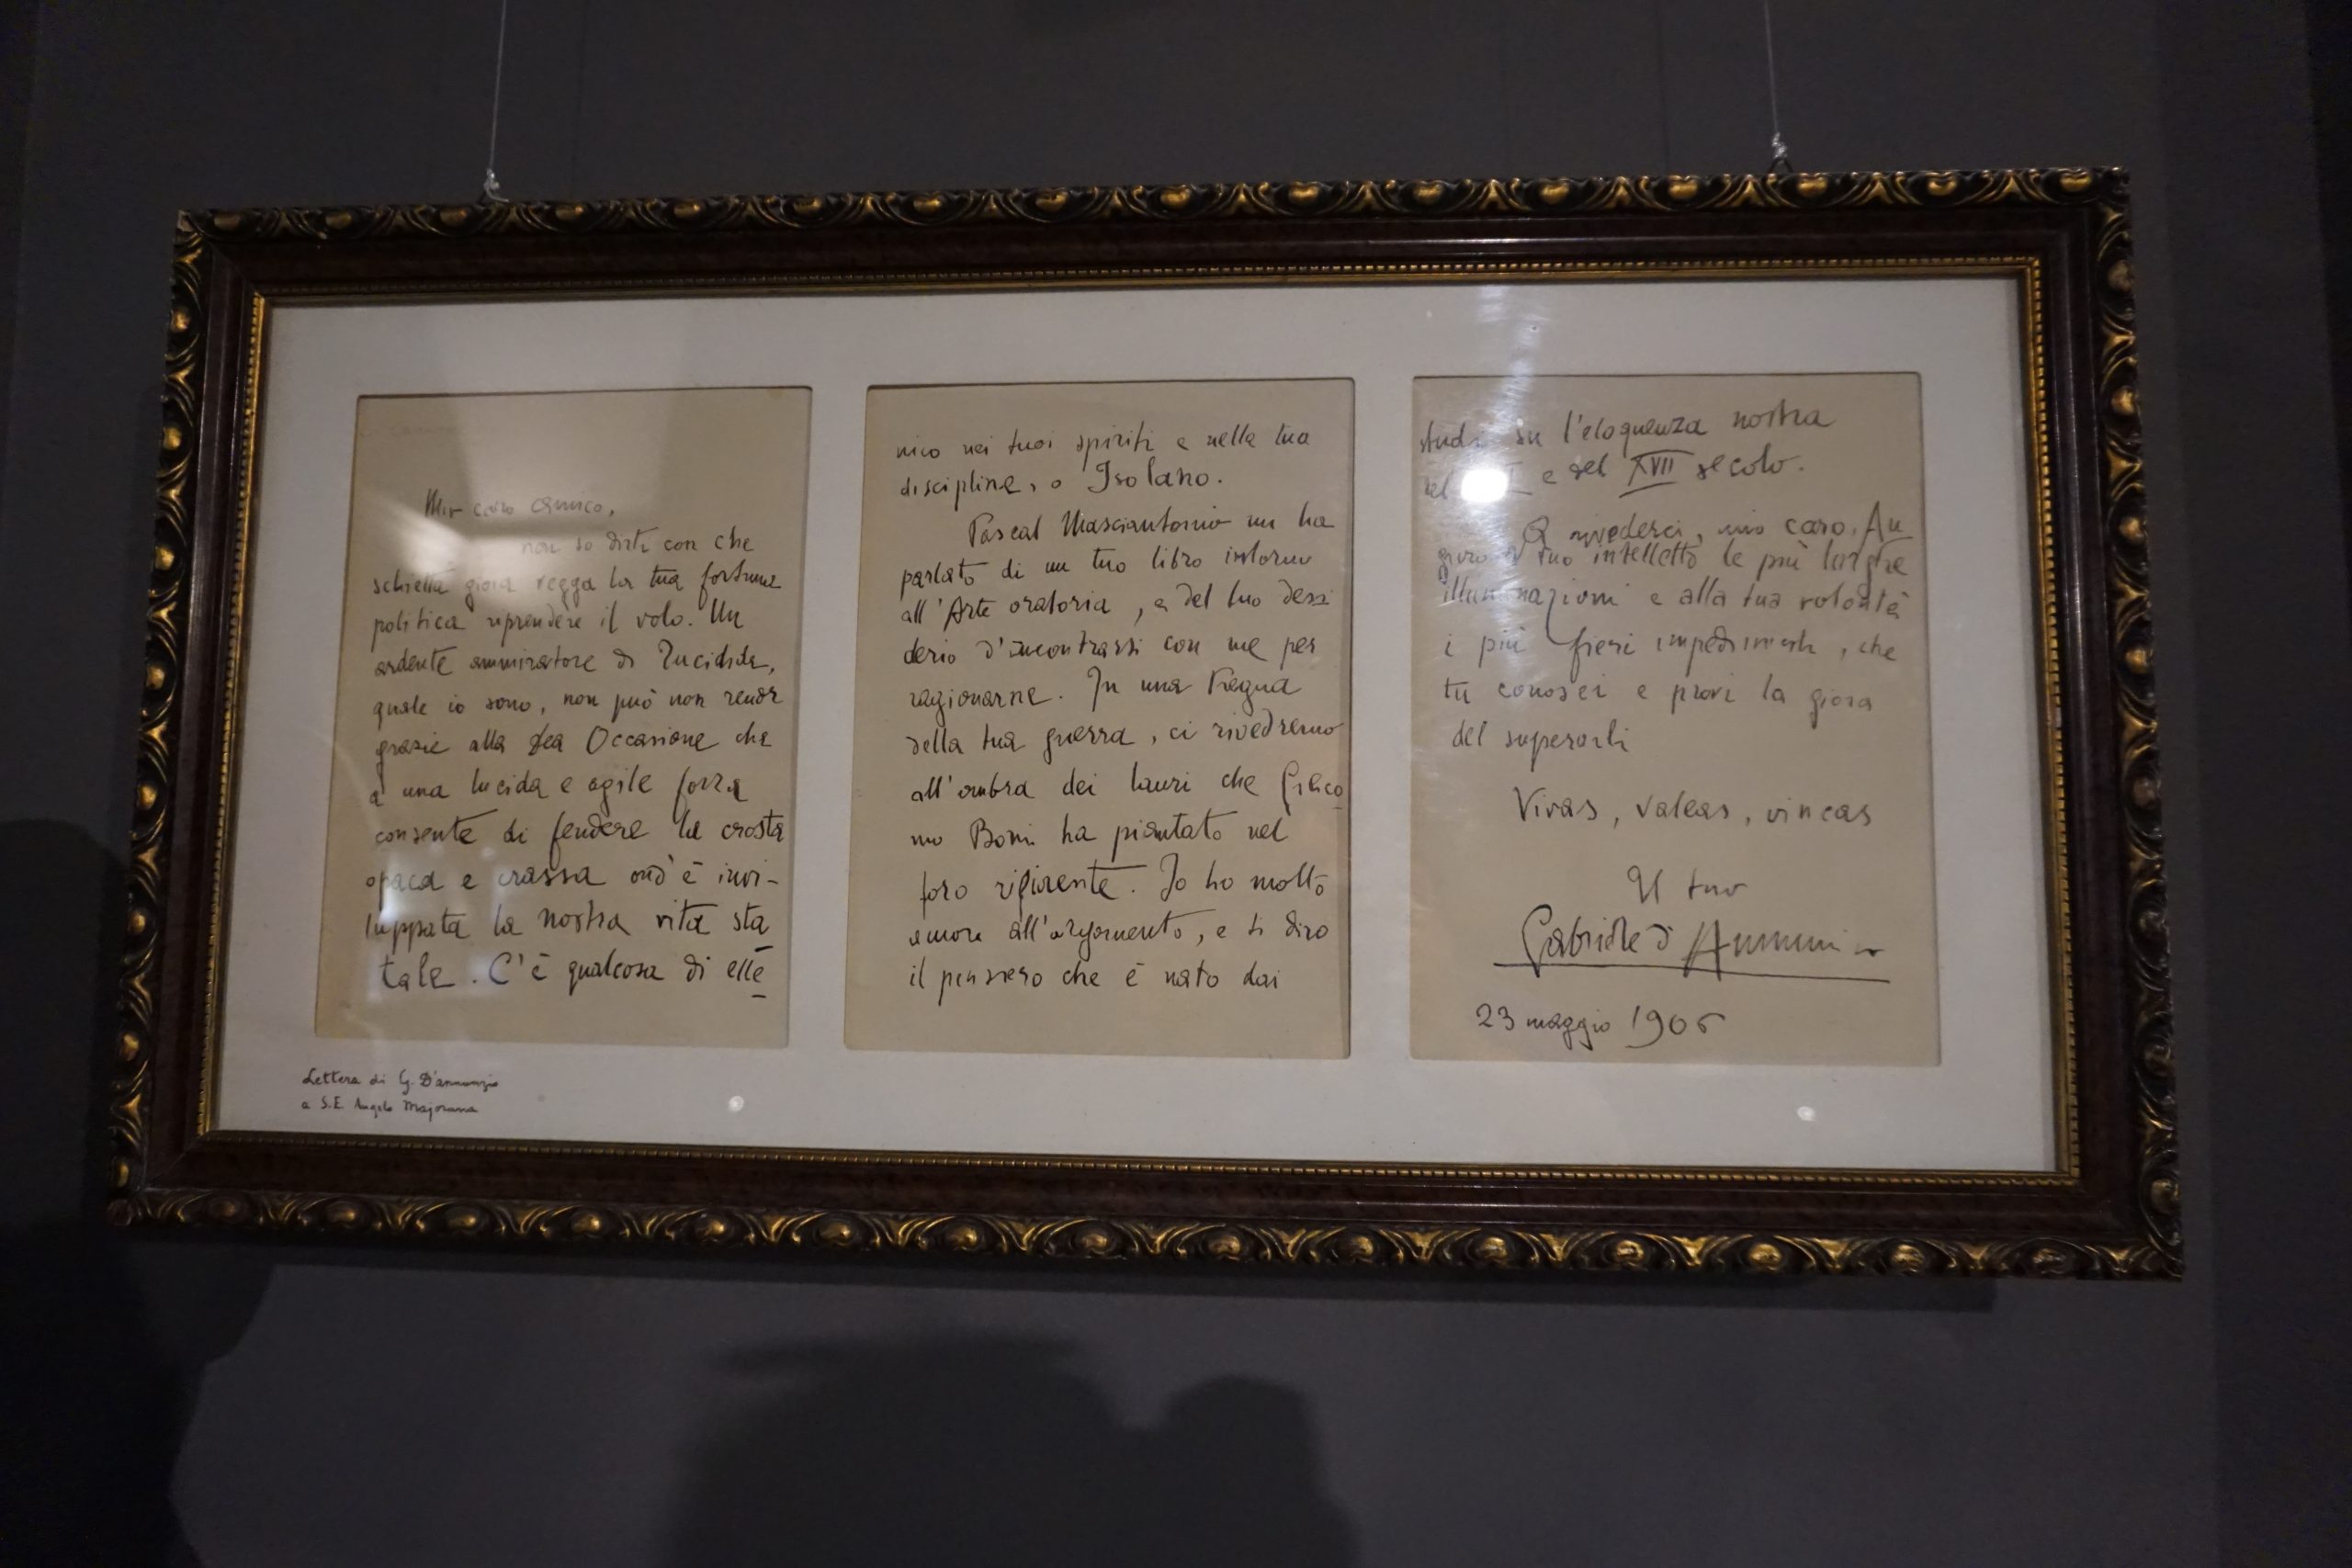 Mio caro amico,
non so dirti con che
schietta gioia vegga la tua fortuna
politica riprendere il volo. Un
ardente ammiratore di Tucidide,
quale io sono, non può non render
grazie alla dea Occasione che
a una lucida e agile forza
consente di fendere la crosta
opaca e crassa ond'è invi-
luppata la nostra vita sta
tale. C'è qualcosa di elle
nico nei tuoi spiriti e nella tua
discipline, o Isolano.
Pascal Masciantonio mi ha
parlato di un tuo libro intorno
all'Arte oratoria, e del tuo desi
derio d'incontrarsi con me per
ragionarne. In una tregua
della tua guerra, ci rivedremo
all'ombra dei lauri che Giaco
mo Boni ha piantato nel
foro rifiorente. Io ho molto
amore all'argomento, e ti dirò
il pensiero che è nato dai
studi su l'eloquenza nostra
del e del XVII secolo.
A rivederci, mio caro. Au
guro al tuo intelletto le più larghe
illuminazioni e alla tua volontà
i più fieri impedimenti, che
tu conosci e provi la gioia
del superarli
Vivas, valeas, vincas
Il tuo
Gabriele d'Annunzio
23 maggio 1906
Lettera di G. D'annunzio
a S.E. Angelo Majorana